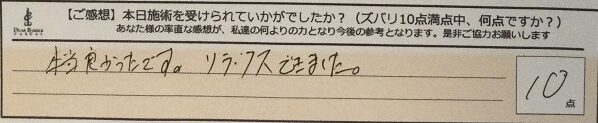 【ご感想】本日施術を受けられていかがでしたか？（ズバリ10点満点中、何点ですか？）
あなた様の率直な感想が、私達の何よりの力となり今後の参考となります。是非ご協力お願いします
本当良かったです。リラックスできました。
10点